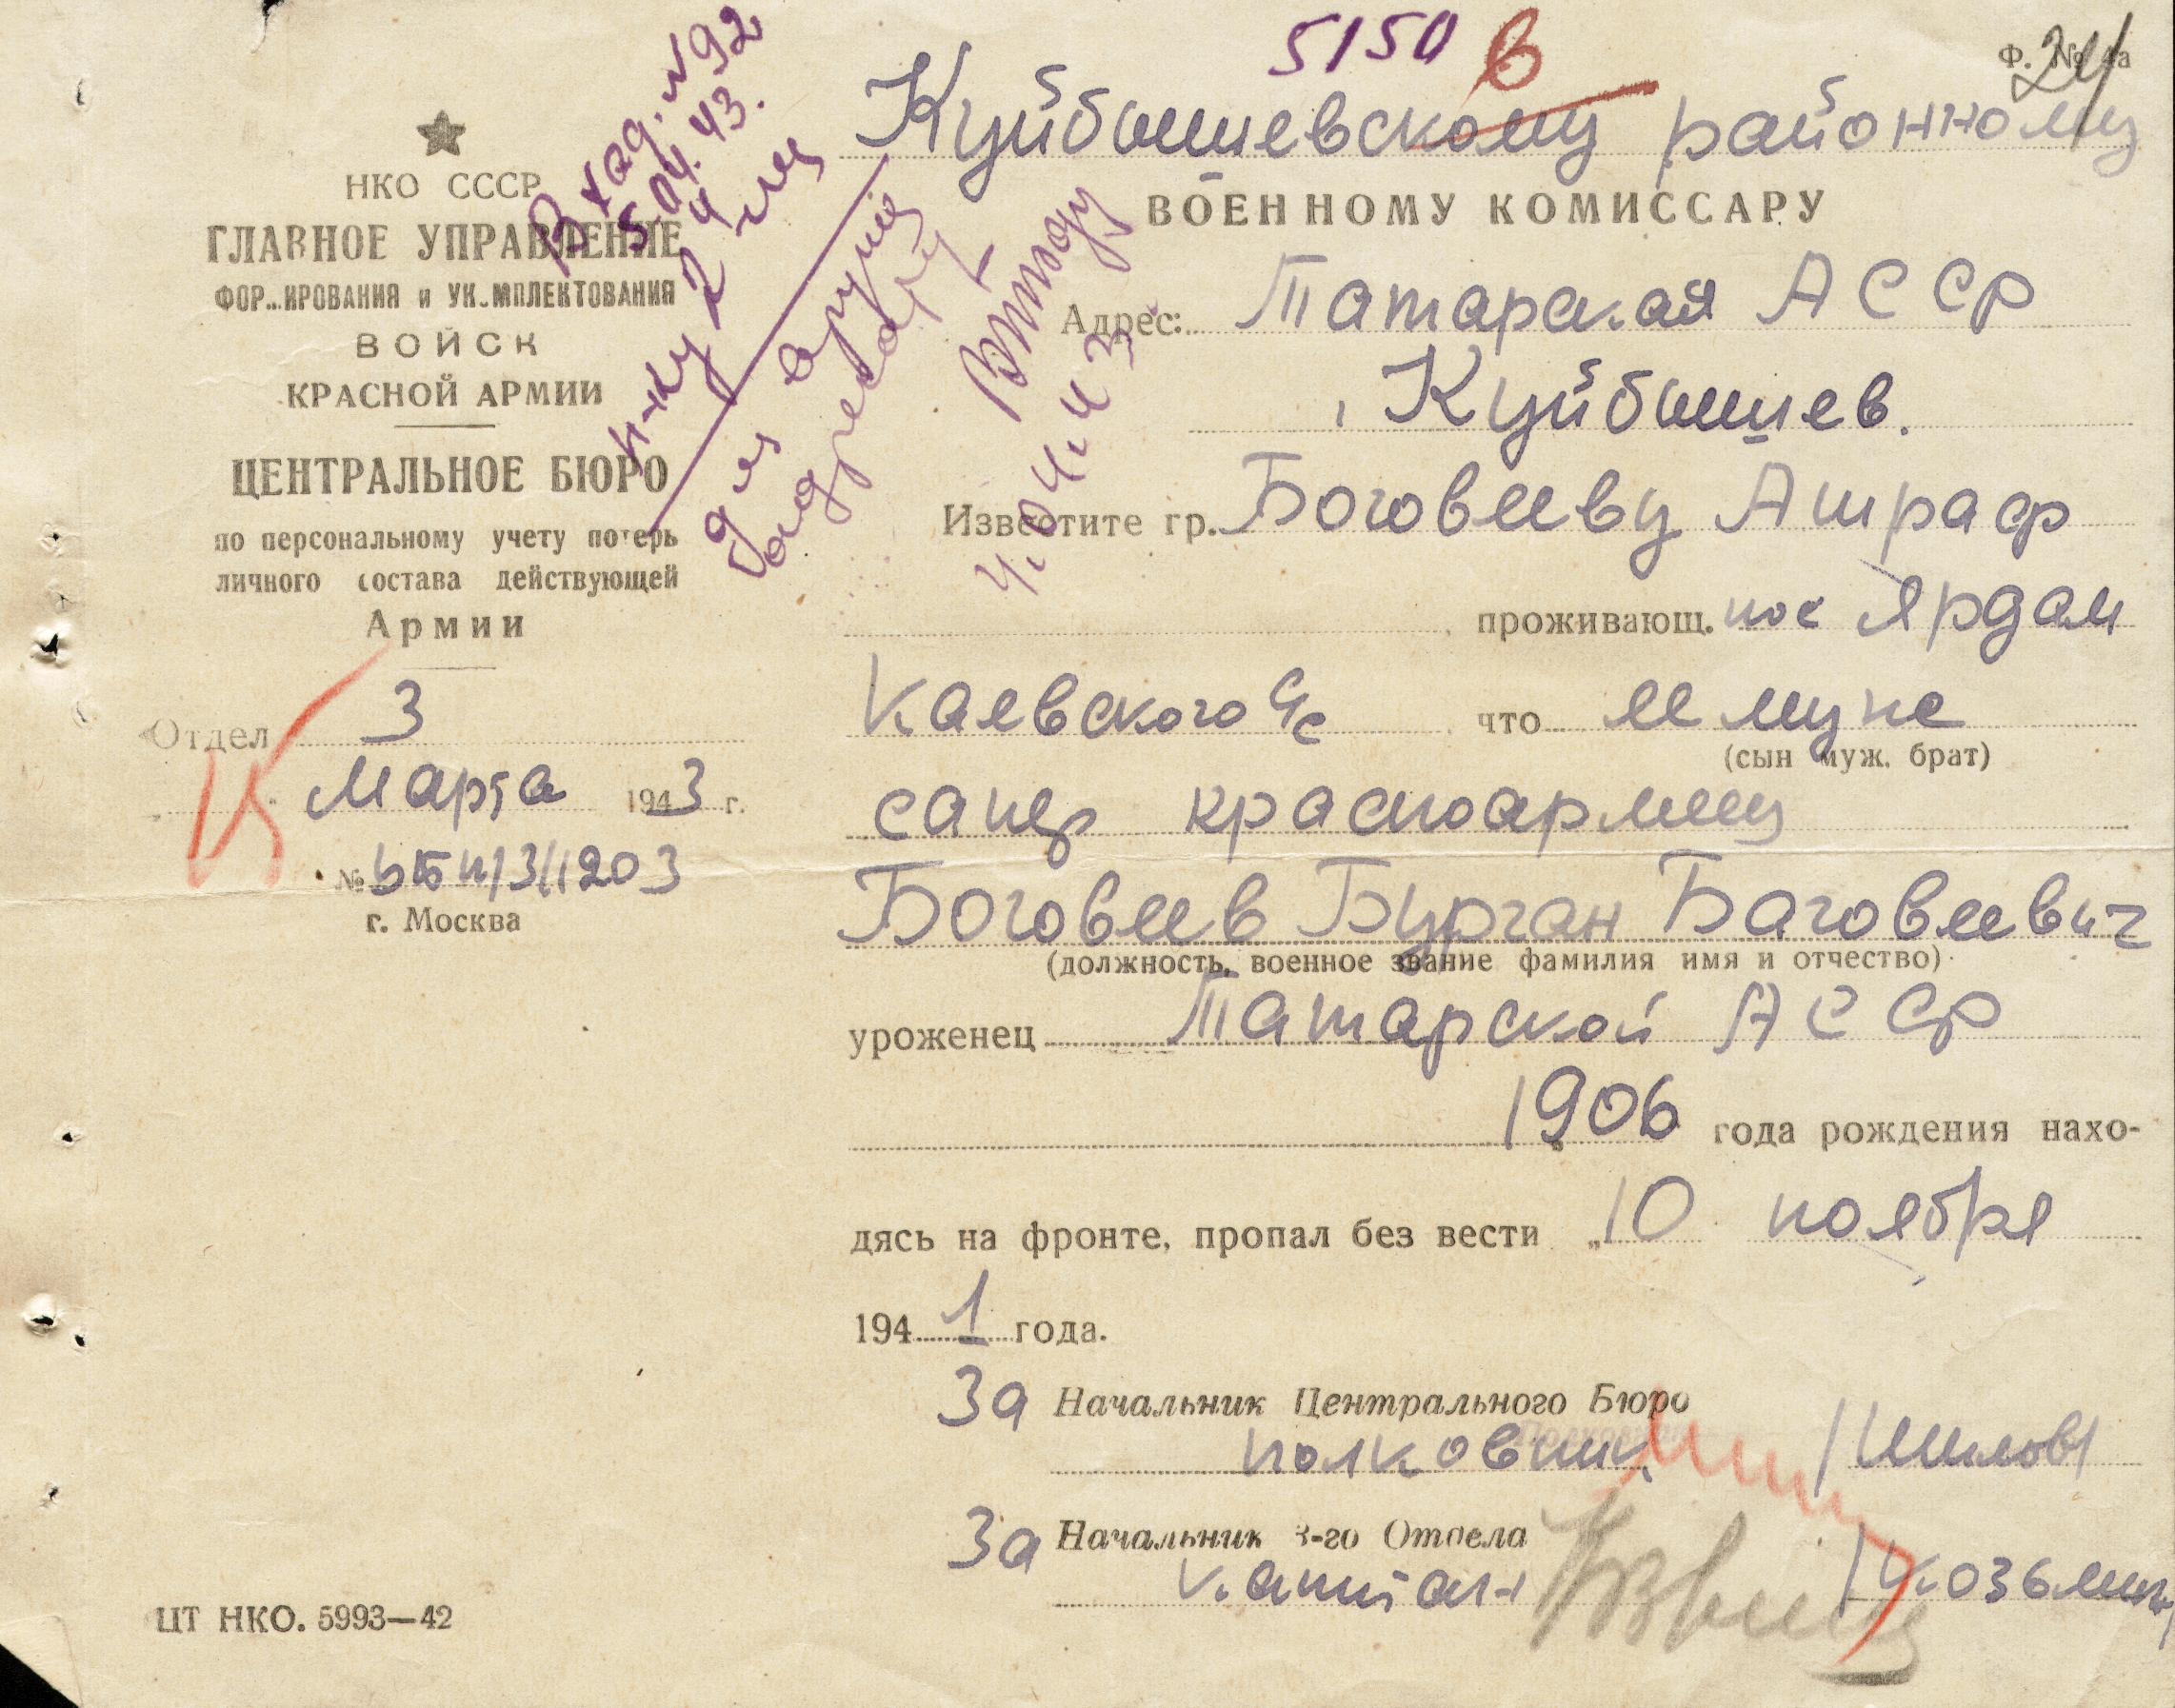 5150 в
Ф. № 4а
24
Куйбышевскому районному
ВОЕННОМУ КОМИССАРУ
Адрес: Татарская АССР
Куйбышев.
Известите гр. Боговееву Ашраф
проживающ. пос Ярдам
Каевского с/с что ее муж
(сын муж. брат)
сапер красноармеец
Боговеев Бурган Баговеевич
(должность, военное звание фамилия имя и отчество)
уроженец Татарской АССР
1906 года рождения нахо-
дясь на фронте, пропал без вести „10 ноября
1941 года.
За Начальник Центрального Бюро
полковник /Шилов/
За Начальник 3-го Отдела
капитан /Козьмин/
НКО СССР
ГЛАВНОЕ УПРАВЛЕНИЕ
ФОР..ИРОВАНИЯ и УК.МПЛЕКТОВАНИЯ
ВОЙСК
КРАСНОЙ АРМИИ
ЦЕНТРАЛЬНОЕ БЮРО
по персональному учету потерь
личного состава действующей
Армии
Отдел 3
Марта 1943 г.
№ 3/1203
г. Москва
Вход. №92
5.04.43.
н-ку 2 ч
для вручения
адресату
4.04.43
ЦТ НКО. 5993—42